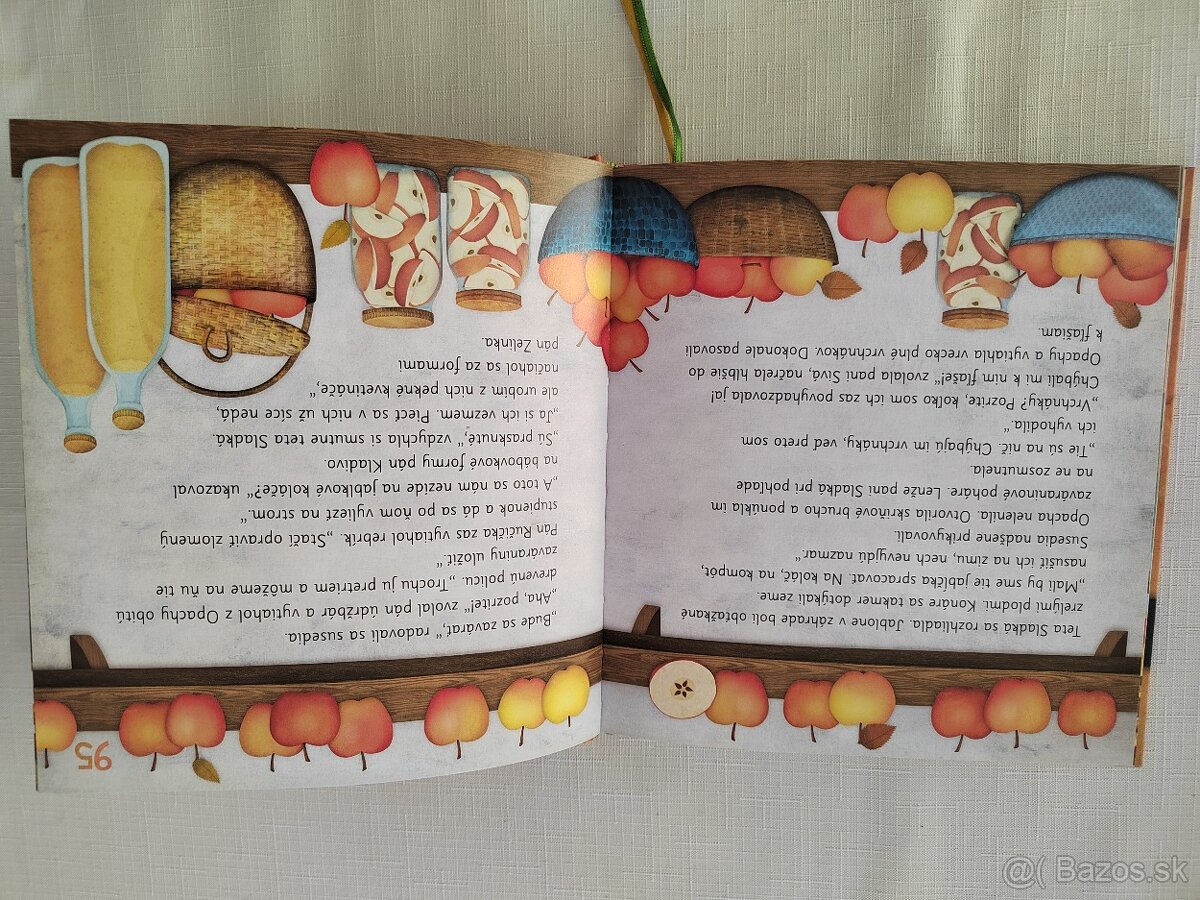 Teta Sladká sa rozhliadla. Jablone v záhrade boli obťažkané
zrelými plodmi. Konáre sa takmer dotýkali zeme.
„Mali by sme tie jabĺčka spracovať. Na koláč, na kompót,
nasušiť ich na zimu, nech nevyjdú nazmar.“
Susedia nadšene prikyvovali.
Opacha nelenila. Otvorila skriňové brucho a ponúkla im
zaváraninové poháre. Lenže pani Sladká pri pohľade
na ne zosmutnela.
„Tie sú na nič. Chýbajú im vrchnáky, veď preto som
ich vyhodila.“
„Vrchnáky? Pozrite, koľko som ich zas povyhadzovala ja!
Chýbali mi k nim fľaše!“ zvolala pani Sivá, načrela hlbšie do
Opachy a vytiahla vrecko plné vrchnákov. Dokonale pasovali
k fľašiam.
„Bude sa zavárať,“ radovali sa susedia.
„Aha, pozrite!“ zvolal pán údržbár a vytiahol z Opachy obitú
drevenú policu. „Trochu ju pretriem a môžeme na ňu tie
zaváraniny uložiť.“
Pán Ručička zas vytiahol rebrík. „Stačí opraviť zlomený
stupienok a dá sa po ňom vyliezť na strom.“
„A toto sa nám nezíde na jablkové koláče?“ ukazoval
na bábovkové formy pán Kladivo.
„Sú prasknuté,“ vzdychla si smutne teta Sladká.
„Ja si ich vezmem. Piecť sa v nich už síce nedá,
ale urobím z nich pekné kvetináče,“
načiahol sa za formami
pán Zelinka.
95
@( Bazos.sk